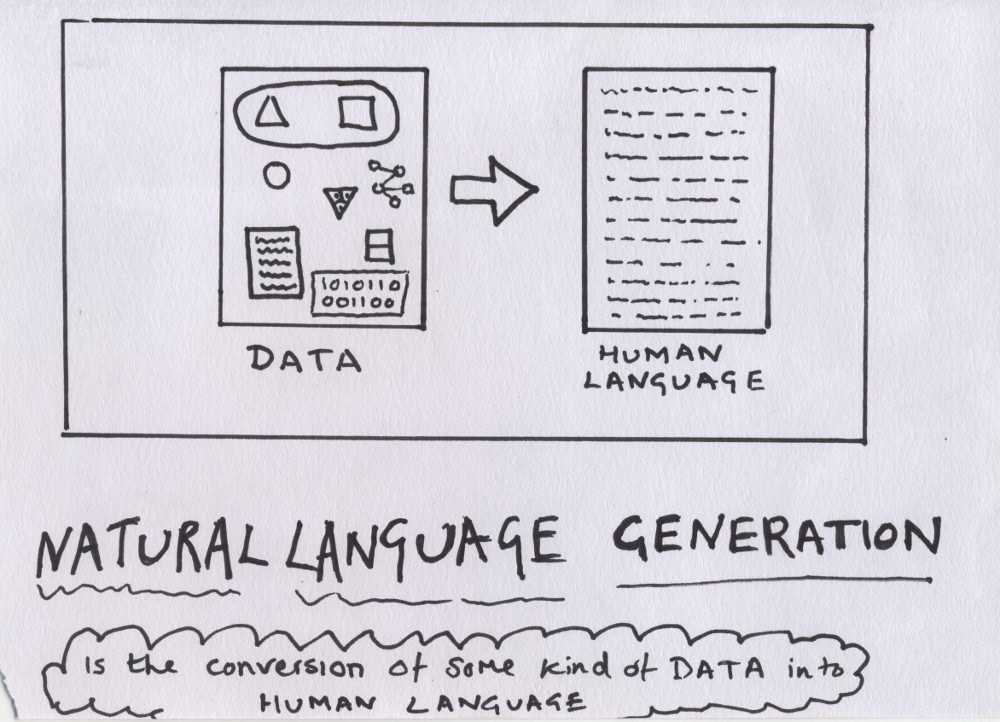 1010110
001100
DATA
HUMAN
LANGUAGE
NATURAL LANGUAGE GENERATION
is the conversion of some kind of DATA into
HUMAN LANGUAGE